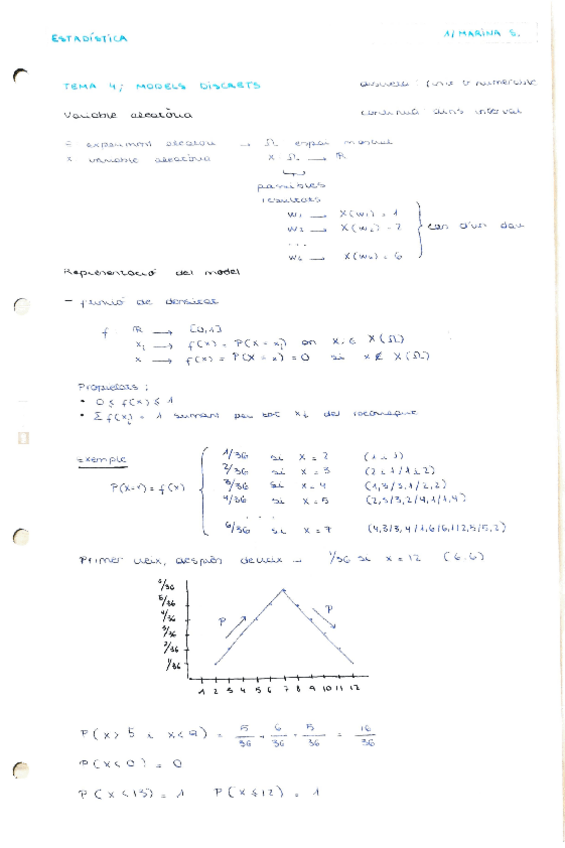 ESTADÍSTICA
1/MARINA S.
TEMA 4: MODELS DISCRETS
discreta: finit o numerable
Variable aleatòria
contínua: dins interval
experiment aleatori → Ω espai mostral
X variable aleatòria X: Ω → R
possibles
resultats
w₁ → X(w₁) = 1
w₂ → X(w₂) = 2 cas d'un dau
...
w₆ → X(w₆) = 6
Representació del model
- funció de densitat
f: R → [0,1]
xᵢ → f(x) = P(X = xᵢ) on xᵢ ∈ X(Ω)
x → f(x) = P(X = x) = 0 si x ∉ X(Ω)
Propietats:
• 0 ≤ f(x) ≤ 1
• Σ f(xᵢ) = 1 sumant per tot xᵢ del recorregut
Exemple
1/36 si x = 2 (1 i 1)
2/36 si x = 3 (2 i 1 / 1 i 2)
P(X=x) = f(x) 3/36 si x = 4 (1,3/3,1/2,2)
4/36 si x = 5 (2,3/3,2/4,1/1,4)
...
6/36 si x = 7 (4,3/3,4/1,6/6,1/2,5/5,2)
Primer creix, després decreix → 1/36 si x = 12 (6,6)
6/36
5/36
4/36
3/36
2/36
1/36
P P
1 2 3 4 5 6 7 8 9 10 11 12
P(x > 5 i x < 9) = 5/36 + 6/36 + 5/36 = 16/36
P(x < 0) = 0
P(x < 13) = 1 P(x ≤ 12) = 1